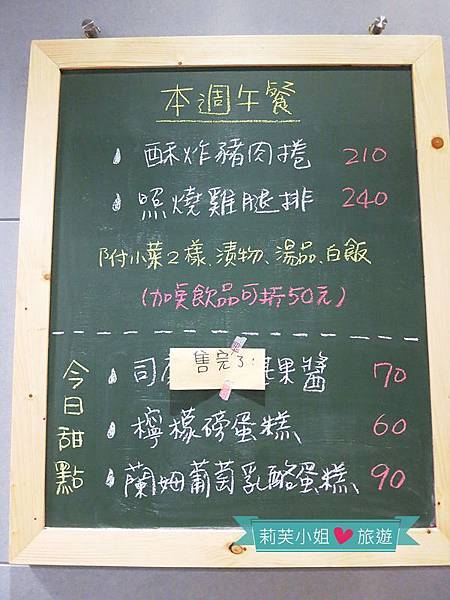 本週午餐
酥炸豬肉捲 210
照燒雞腿排 240
附小菜2樣、漬物、湯品、白飯
(加桌飲品可折50元)
今日甜點
司 果醬 70
售完了!
檸檬磅蛋糕 60
蘭姆葡萄乳酪蛋糕 90
莉芙小姐 旅遊